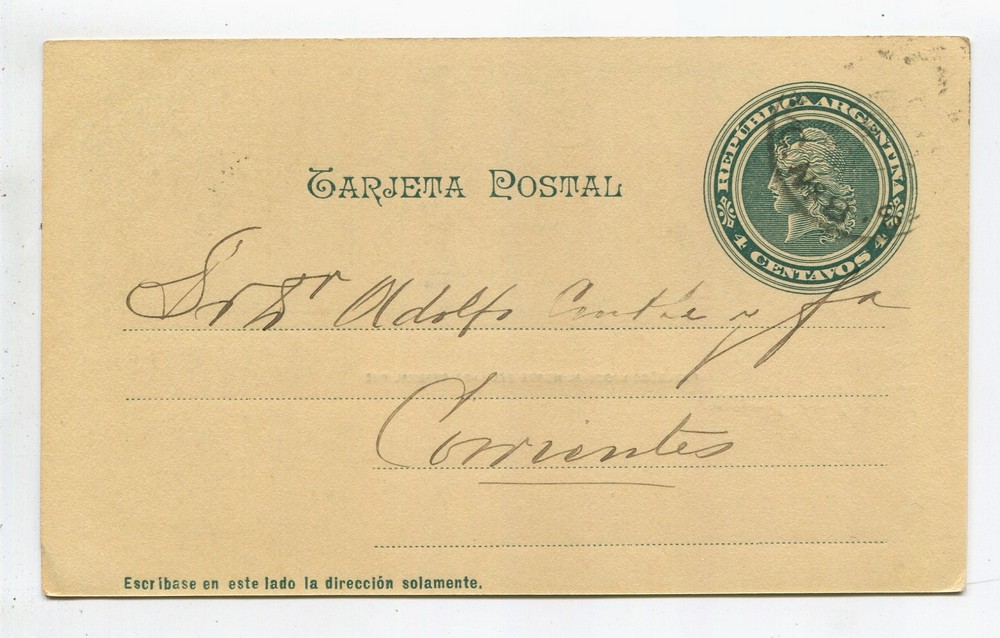 REPÚBLICA ARGENTINA
4 CENTAVOS 4
TARJETA POSTAL
Sr Dr Adolfo y
Corrientes
Escríbase en este lado la dirección solamente.